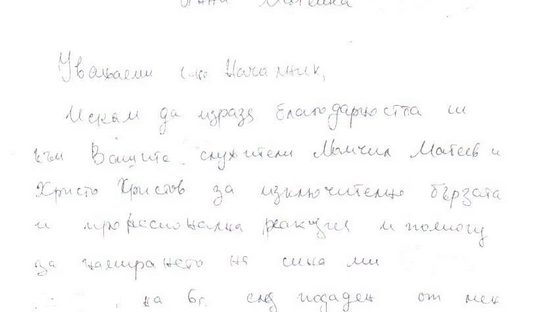 Уважаеми г-н Началник,
Искам да изразя благодарността си
към Вашите служители Момчил Матеев и
Христо Христов за изключително бързата
и професионална реакция и помощ
за намирането на сина ми
на 6г. след подаден от мен